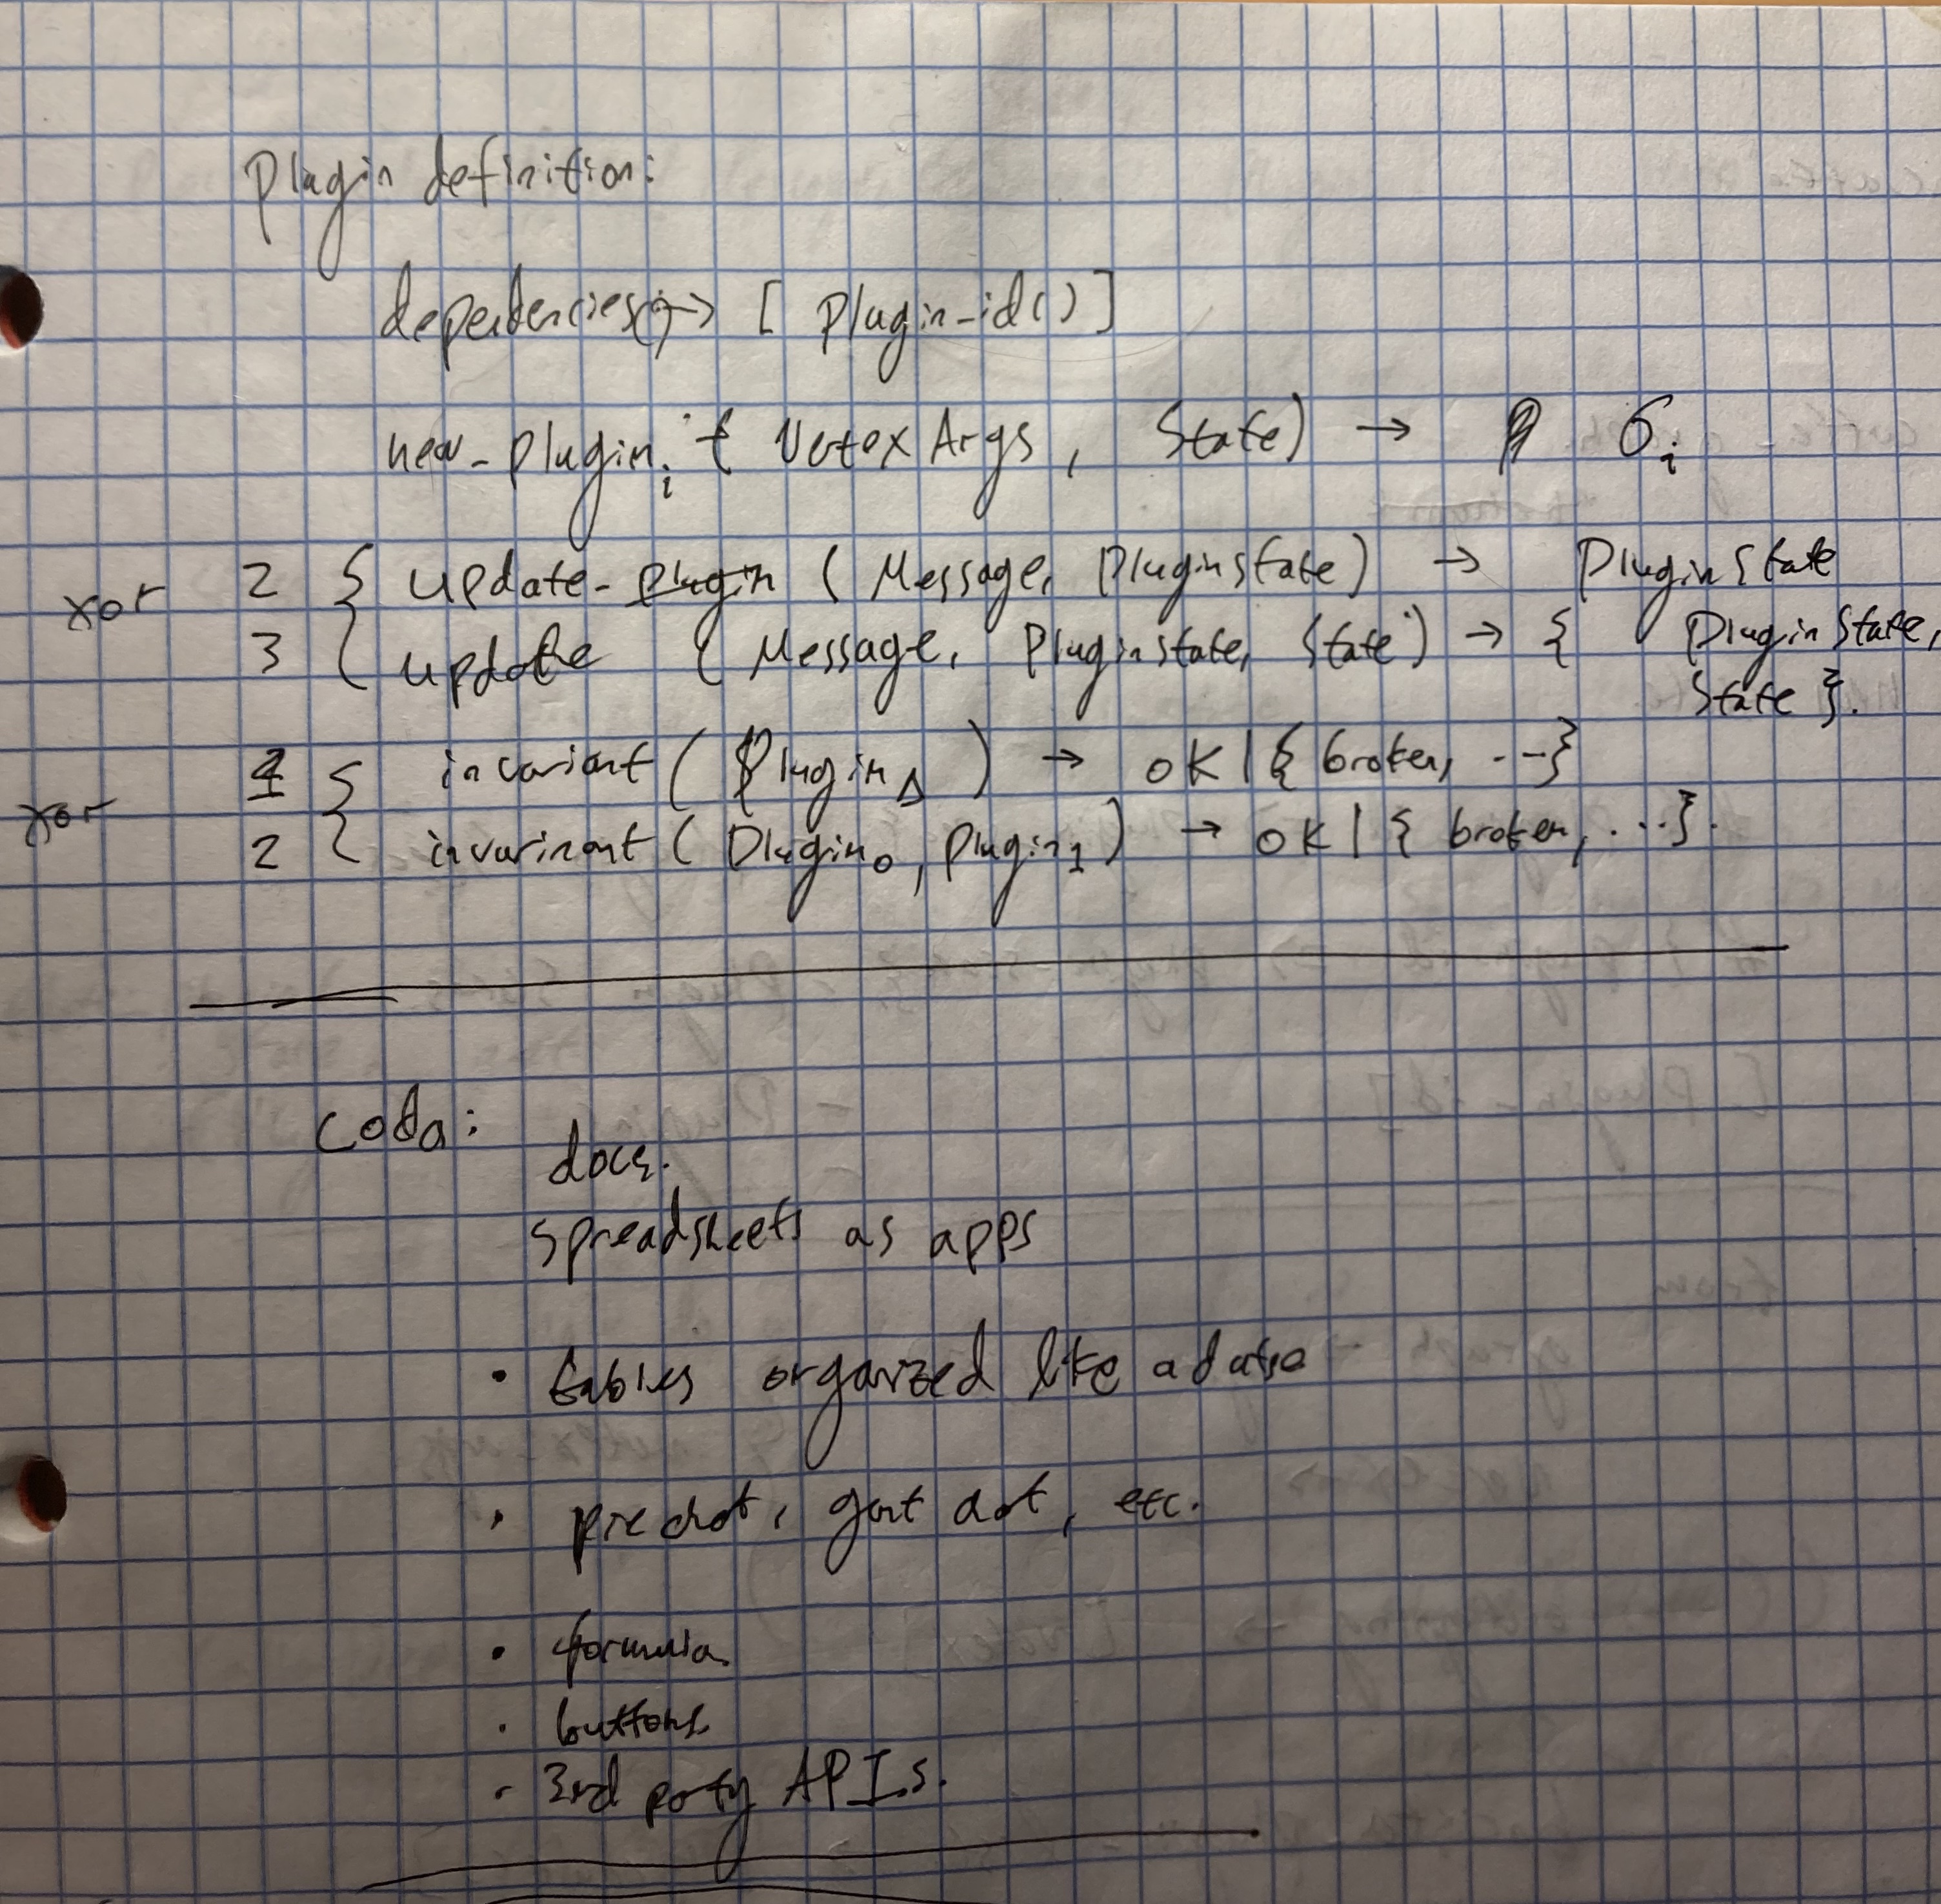 Plugin definition:
dependencies() → [ plugin_id() ]
new_plugin i ( Vertex Args, State) → σi
xor 2 { update_plugin ( Message, PluginState) → PluginState
3 { update ( Message, PluginState, State) → { PluginState,
State }.
xor 1 { invariant ( Plugin Δ ) → ok | { broken, ...}
2 { invarinant ( Plugin0, Plugin1) → ok | { broken, ...}.
Coda:
docs.
spreadsheets as apps
• tables organized like a
• pie chot, gant etc.
• formula
• buttons
• 3rd party APIs.